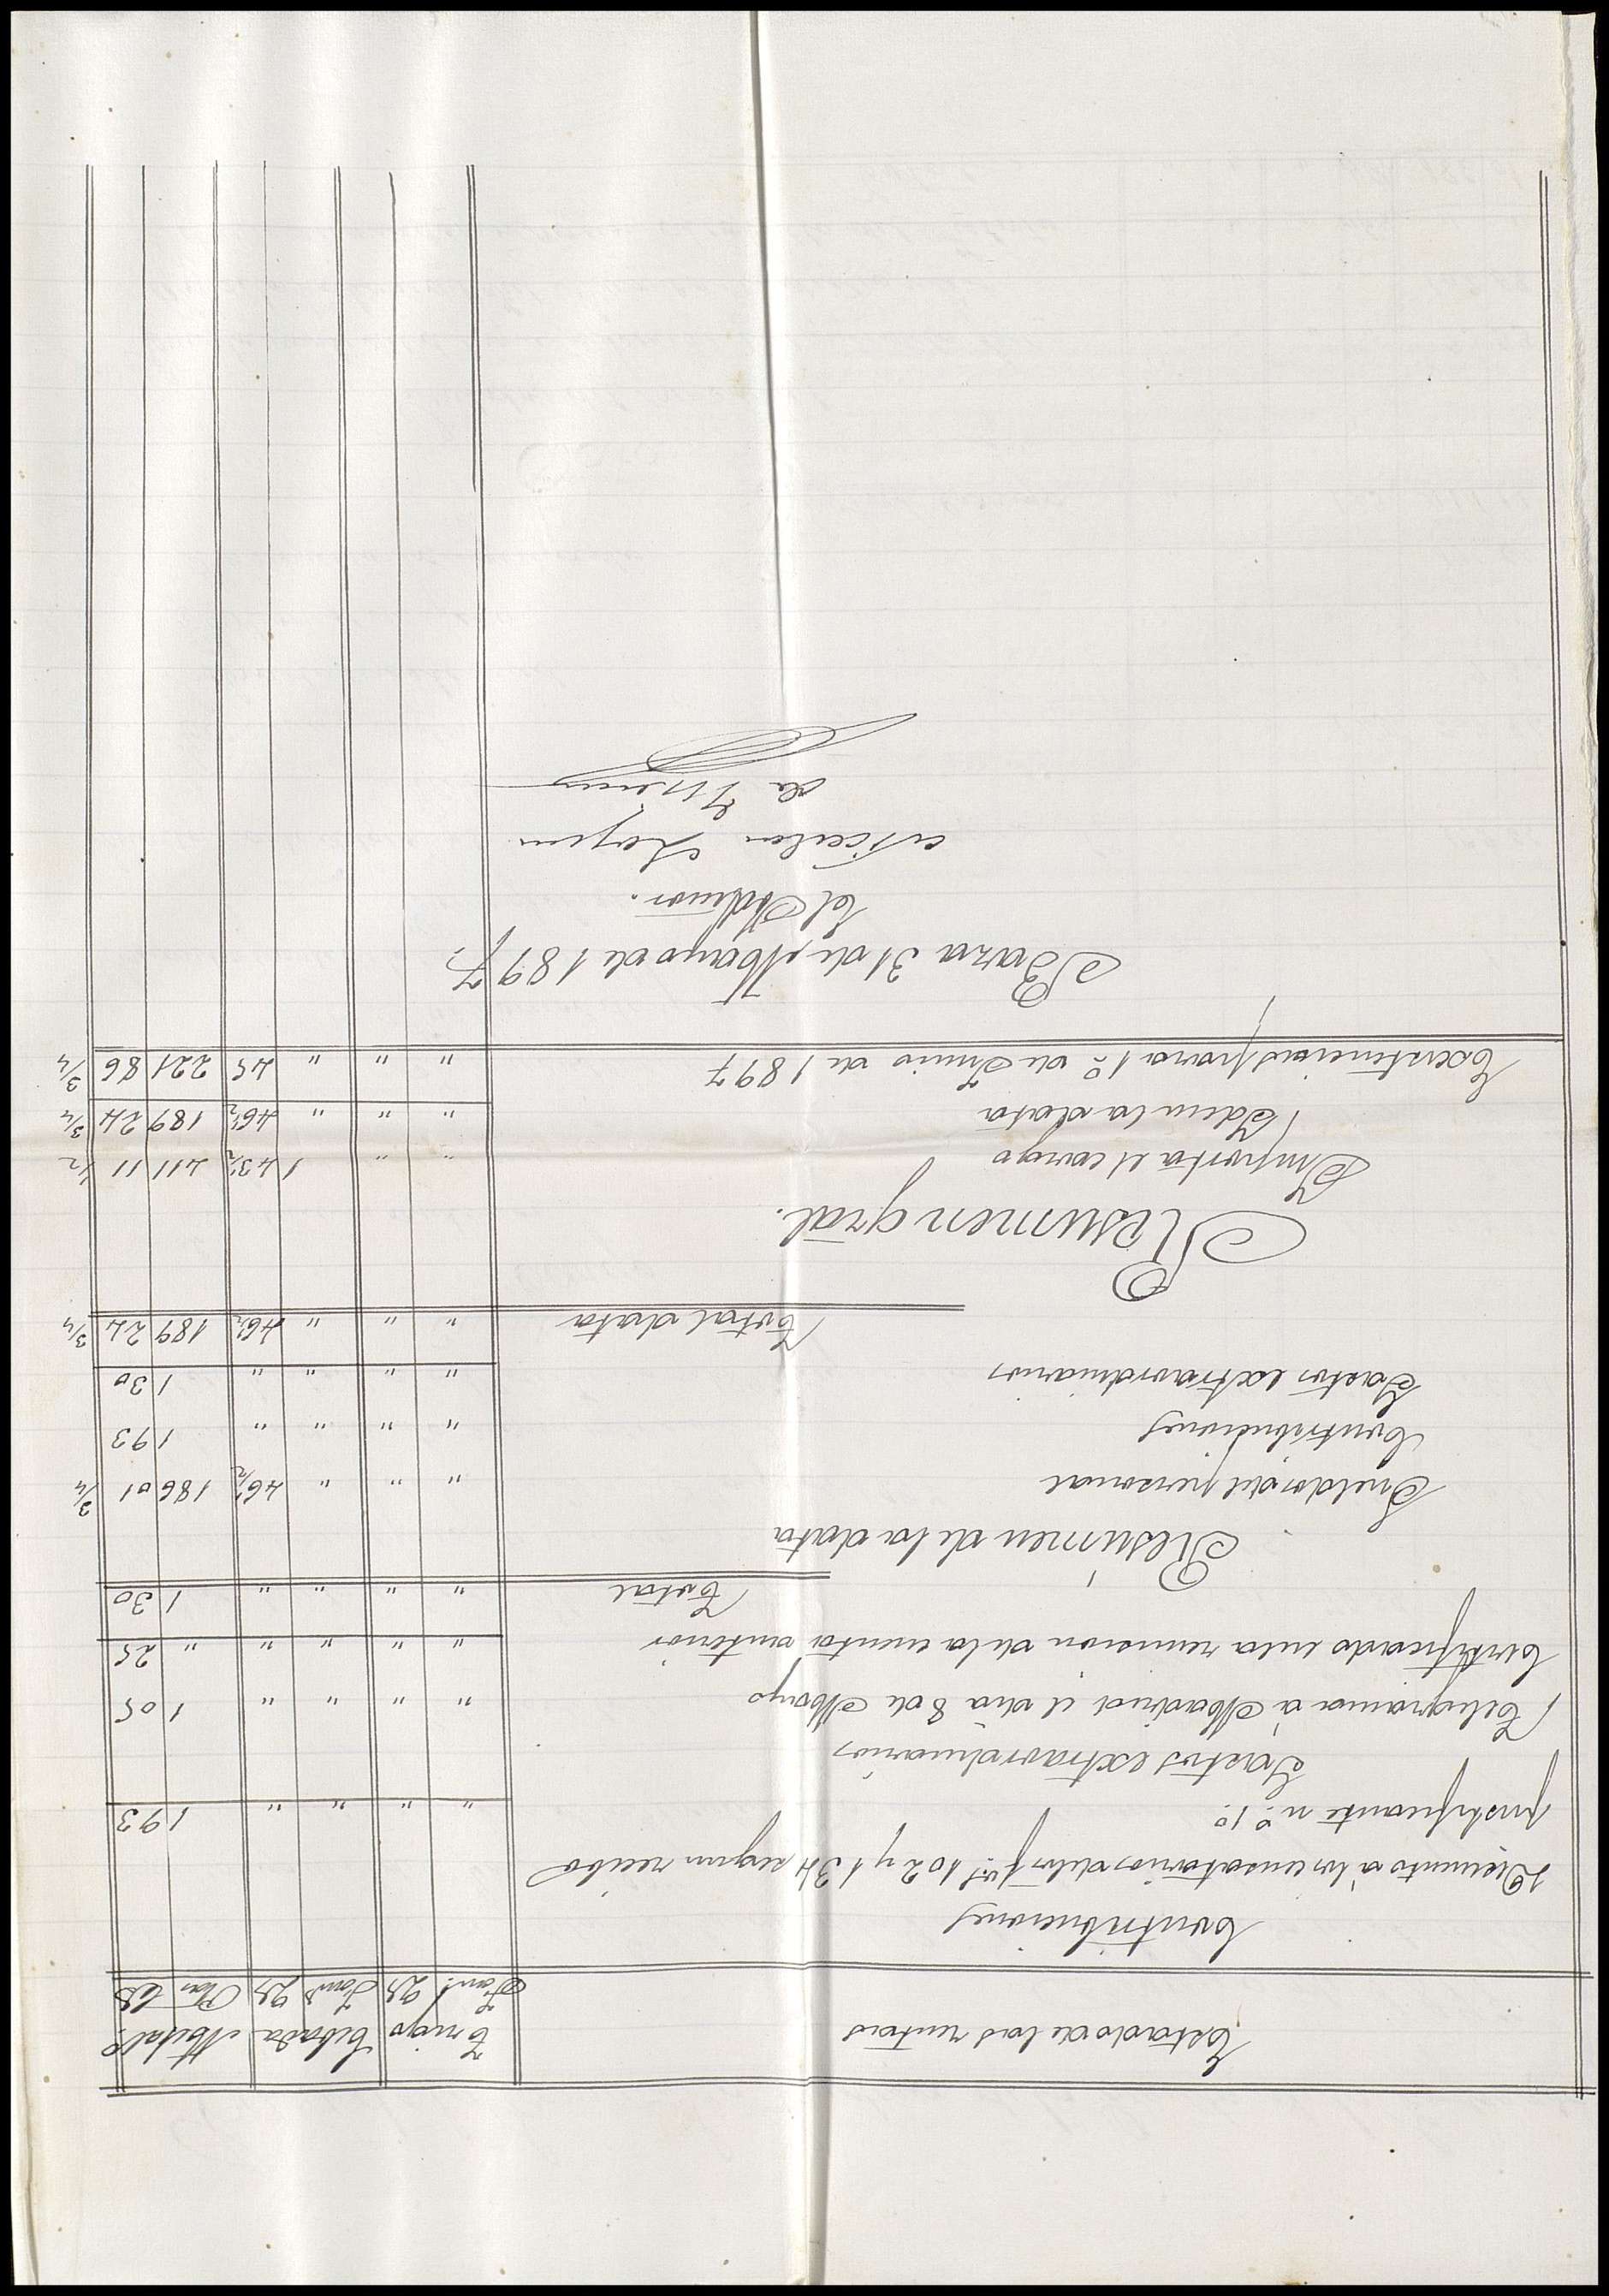 Estado de las rentas Trigo Cebada Metal.º
Fan.s Cs Fan.s Cs Ptas Cs
Contribuciones
Descuento á los censatarios de los f.os 102 y 134 segun recibo
justificante n.º 1º " " " " 1 93
Gastos extraordinarios
Telegrama á Madrid el dia 8 de Mayo " " " " 1 05
Certificado en la remision de la cuenta anterior " " " " " 25
Total " " " " 1 30
Resúmen de la data
Sueldos del personal " " " 46½ 186 01 ¾
Contribuciones " " " " 1 93
Gastos extraordinarios " " " " 1 30
Total data " " " 46½ 189 24 ¾
Resumen gral.
Importa el cargo " " 1 43½ 411 11 ½
Idem la data " " " 46½ 189 24 ¾
Existencias para 1º de Junio de 1897 " " " 45 221 86 ¾
Baza 31 de Mayo de 1897.
El Admor.
de